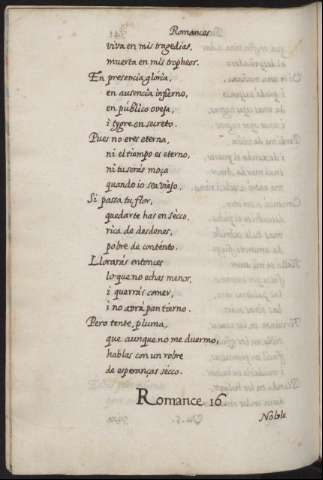 Romances
viva en mis tragedias,
muerta en mis tropheos.
En presencia gloria,
en ausencia infierno,
en público oveja,
i tygre en secreto.
Pues no eres eterna,
ni el tiempo es eterno,
ni tu serás moça
quando io sea viejo.
Si passa tu flor,
quedarte has en secco,
rica de desdenes,
pobre de contento.
Llorarás entonces
lo que no echas menos,
i querrás comer,
i no avrá pan tierno.
Pero tente, pluma,
que aunque no me duermo,
hablas con un robre
de esperanças secco.
Romance 16
Noble